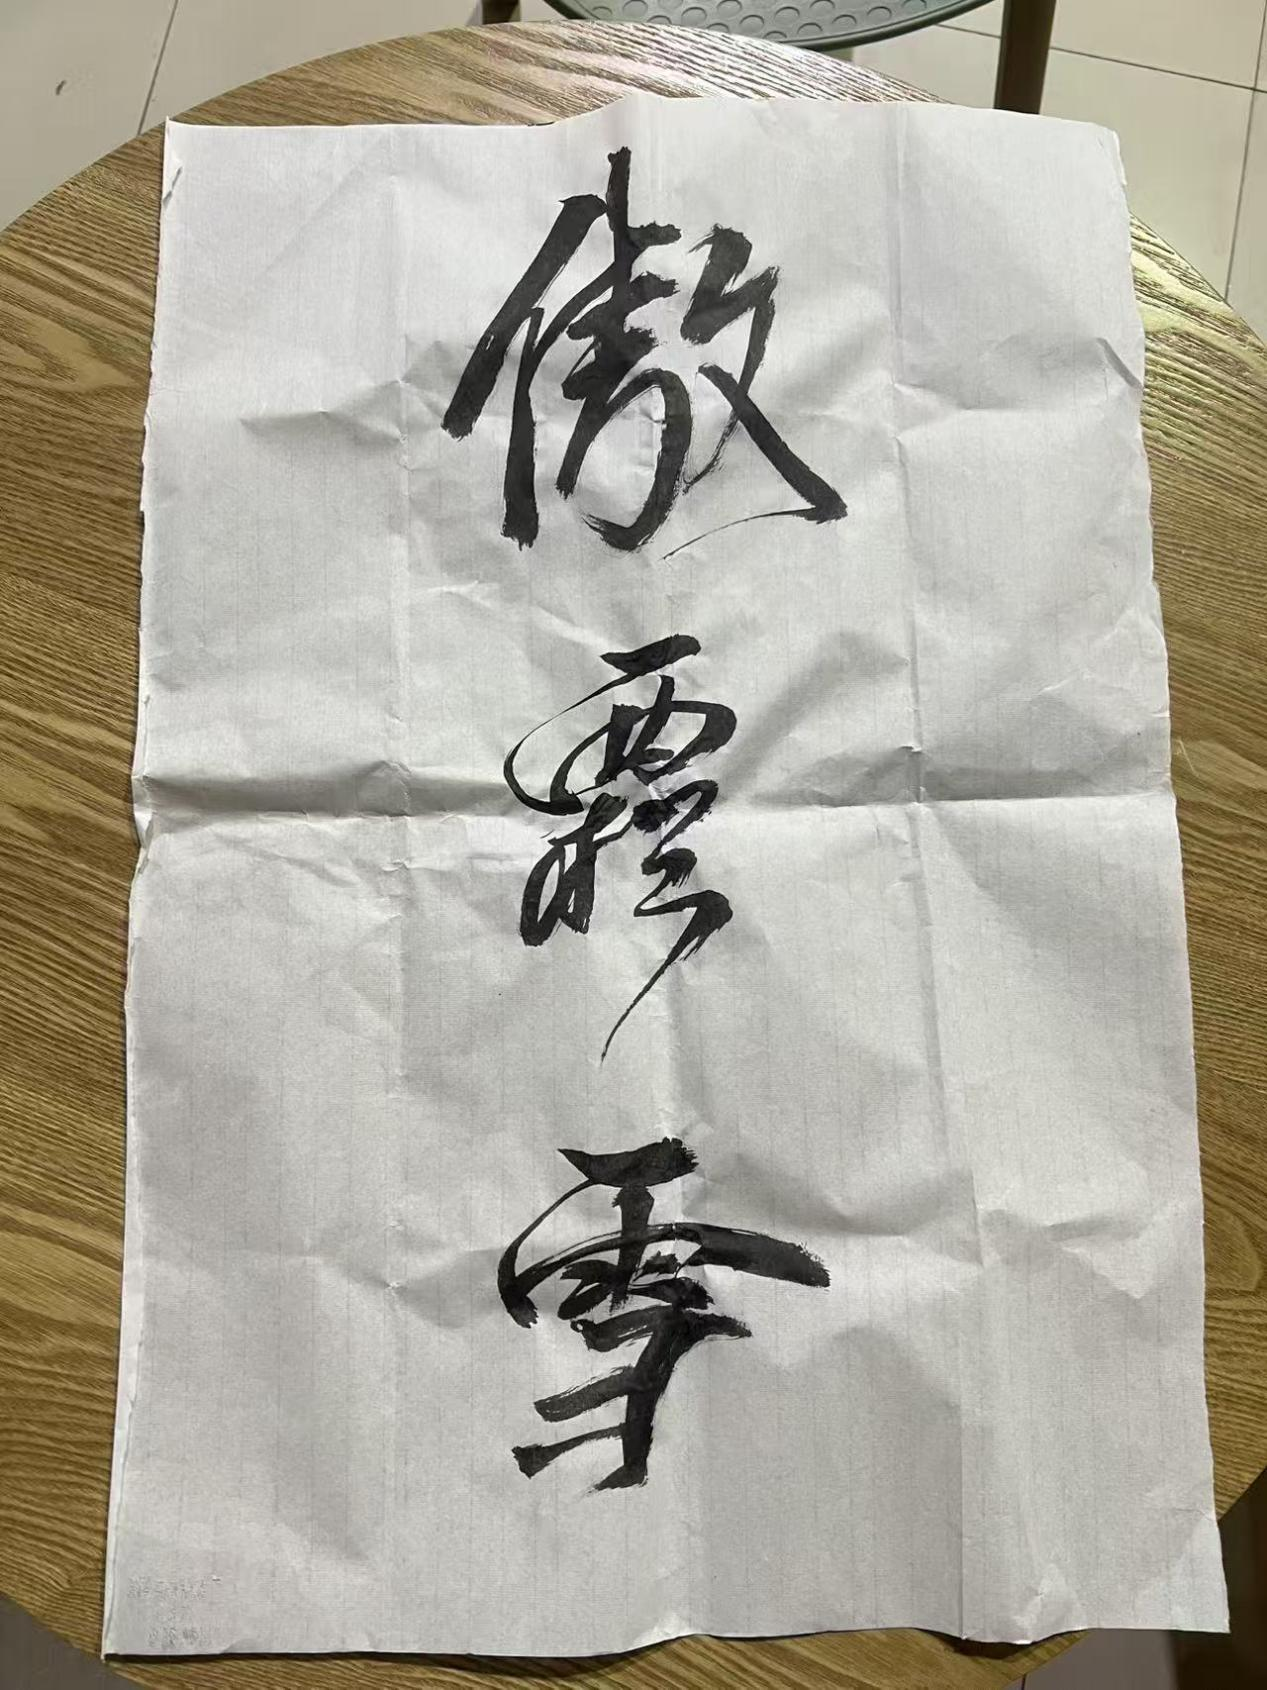 傲霜雪